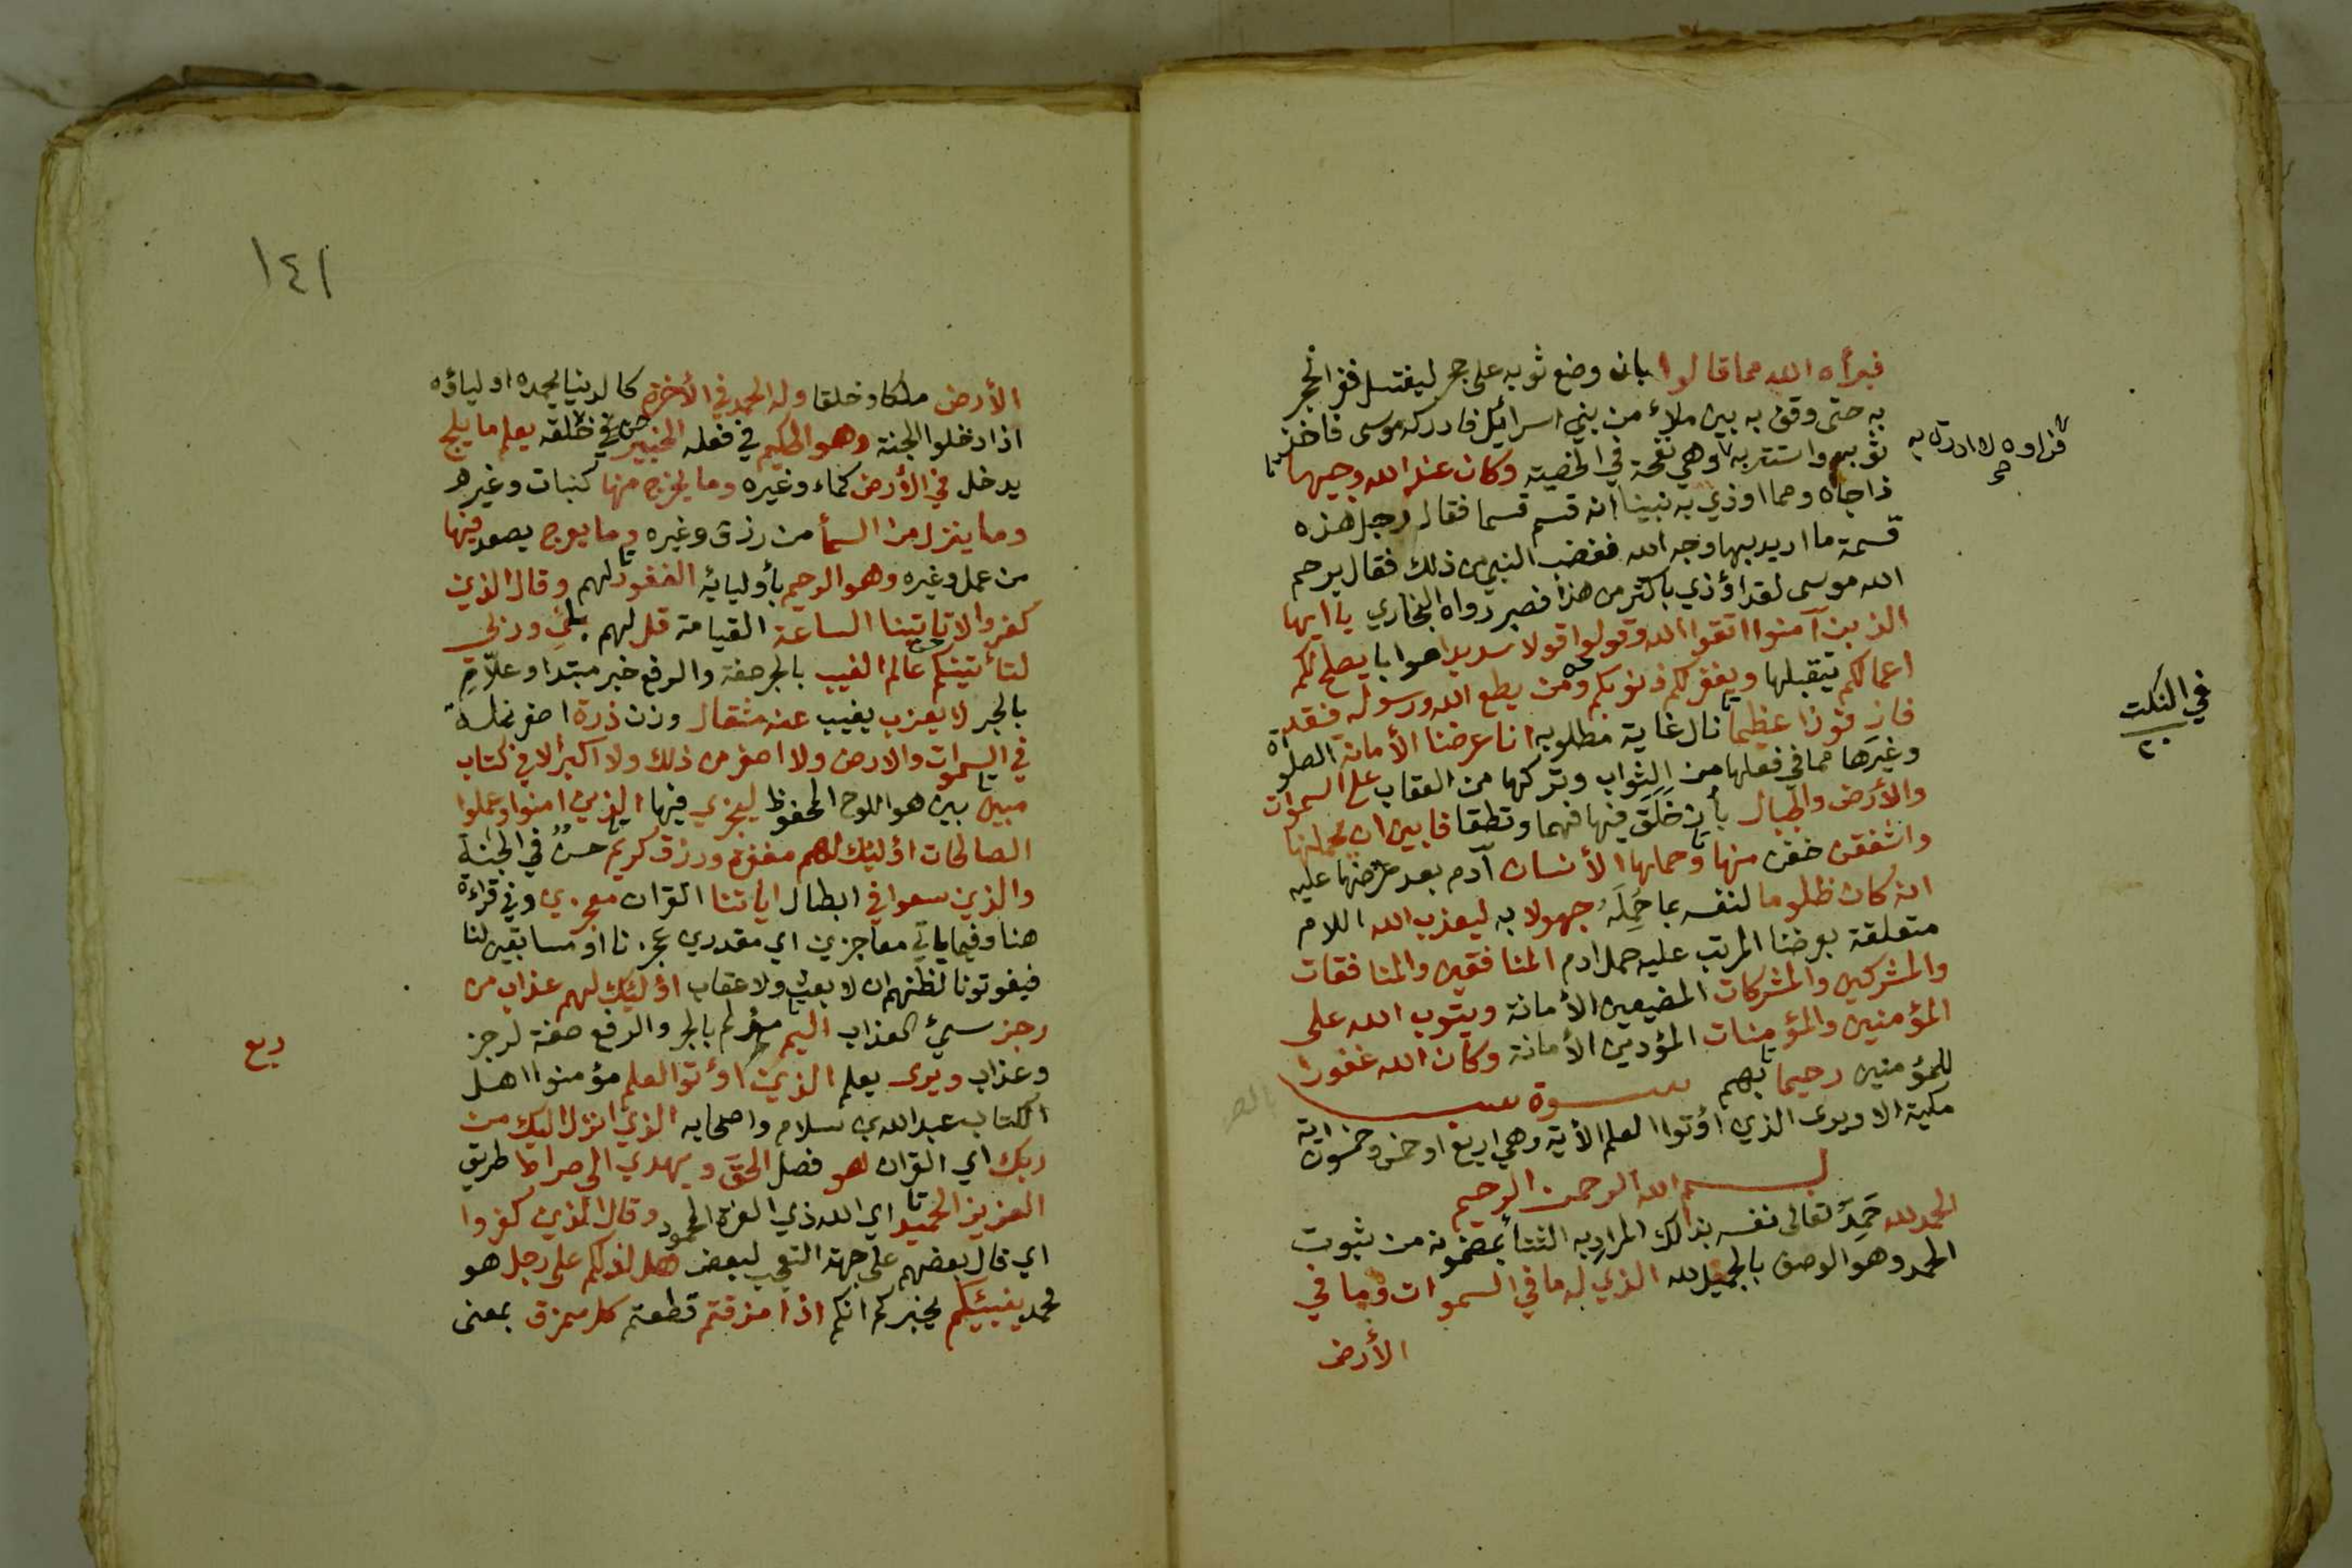 فبرأه الله مما قالوا بان وضع ثوبه على حجر ليغتسل ففر الحجر
به حتى وقف به بين ملاء من بني اسرائيل فادركه موسى فاخذ
ثوبه واستتر به وهي نفخة في الخصية وكان عند الله وجيها
ذا جاه ومما اوذي به نبينا انه قسم قسما فقال رجل هذه
قسمة ما اريد بها وجه الله فغضب النبي من ذلك فقال يرحم
الله موسى لقد اؤذي باكثر من هذا فصبر رواه البخاري يا ايها
الذين آمنوا اتقوا الله وقولوا قولا سديدا صوابا يصلح لكم
اعمالكم يتقبلها ويغفر لكم ذنوبكم ومن يطع الله ورسوله فقد
فاز فوزا عظيما نال غاية مطلوبه انا عرضنا الأمانة الصلوة
وغيرها مما في فعلها من الثواب وتركها من العقاب على السموات
والأرض والجبال بأن خَلَقَ فيها فهما ونطقا فابين ان يحملنها
واشفقن خفن منها وحملها الأنسان آدم بعد عرضها عليه
انه كان ظلوما لنفسه بما حَمِلَهُ جهولا به ليعذب الله اللام
متعلقة بعرضنا المرتب عليه حمل ادم المنافقين والمنافقات
والمشركين والمشركات المضيعين الأمانة ويتوب الله على
المؤمنين والمؤمنات المؤدين الأمانة وكان الله غفورا
للمؤمنين رحيما بهم سورة سبا
مكية الا ويرى الذين اؤتوا العلم الأية وهي اربع او خمس وخمسون اية
بسم الله الرحمن الرحيم
الحمد لله حَمِدَ تعالى نفسه بذالك المراد به الثنأ بمضمونه من ثبوت
الحمد وهو الوصف بالجميل لله الذي له ما في السموات وما في
الأرض
في النكت
٢٠
١٤١
الأرض ملكا وخلقا وله الحمد في الأخرة كالدنيا يحمده اولياؤه
اذا دخلوا الجنة وهو الحكيم في فعله الخبير في خلقه يعلم ما يلج
يدخل في الأرض كماء وغيره وما يخرج منها كنبات وغيره
وما ينزل من السمأ من رزق وغيره وما يعرج يصعد فيها
من عمل وغيره وهو الرحيم بأوليائه الغفور لهم وقال الذين
كفروا لا تاتينا الساعة القيامة قل لهم بلى وربي
لتأتينكم عالم الغيب بالجر صفة والرفع خبر مبتدا وعلّامِ
بالجر لا يعزب يغيب عنه مثقال وزن ذرة اصغر نملة
في السموات والارض ولا اصغر من ذلك ولا اكبر الا في كتاب
مبين بين هو اللوح المحفوظ ليجزي فيها الذين امنوا وعملوا
الصالحات اؤليك لهم مغفرة ورزق كريم حسن في الجنة
والذين سعوا في ابطال اياتنا القران معجزين وفي قراءة
هنا وفيما ياتي معاجزين اي مقدرين عجزنا او مسابقين لنا
فيفوتونا لظنهم ان لا بعث ولا عقاب اؤليك لهم عذاب من
رجز سيئ العذاب اليم مؤلم بالجر والرفع صفة لرجز
وعذاب ويرى يعلم الذين اؤتوا العلم مؤمنوا اهل
الكتاب عبد الله بن سلام واصحابه الذي انزل اليك من
ربك اي القران هو فصل الحق ويهدي الى صراط طريق
العزيز الحميد اي الله ذي العزة المحمود وقال الذين كفروا
اي قال بعضهم على جهة التعجب لبعض هل ندلكم على رجل هو
محمد ينبيئكم يخبركم انكم اذا مزقتم قطعتم كل ممزق بمعنى
ربع